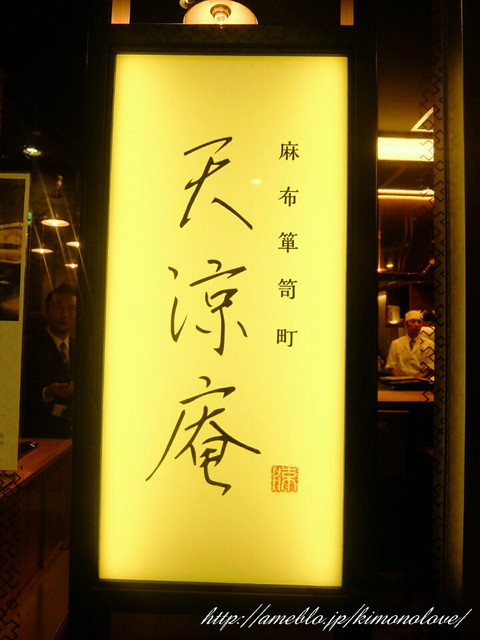 麻布箪笥町
天涼庵
http://ameblo.jp/kimonolove/